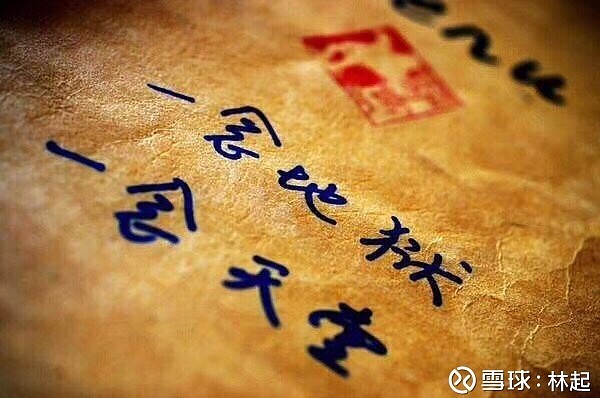 一念地狱
一念天堂
雪球：林起